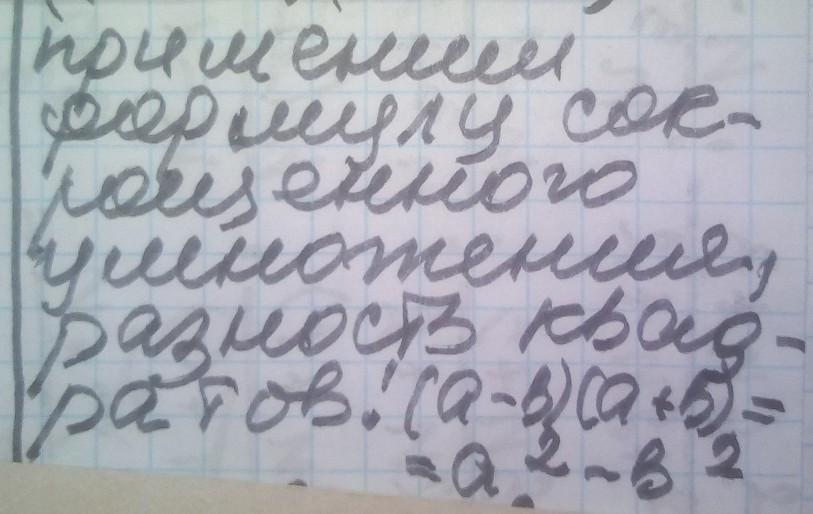 применим
формулу сок-
ращенного
умножения,
разность квад-
ратов: (a-b)(a+b)=
=a²-b²